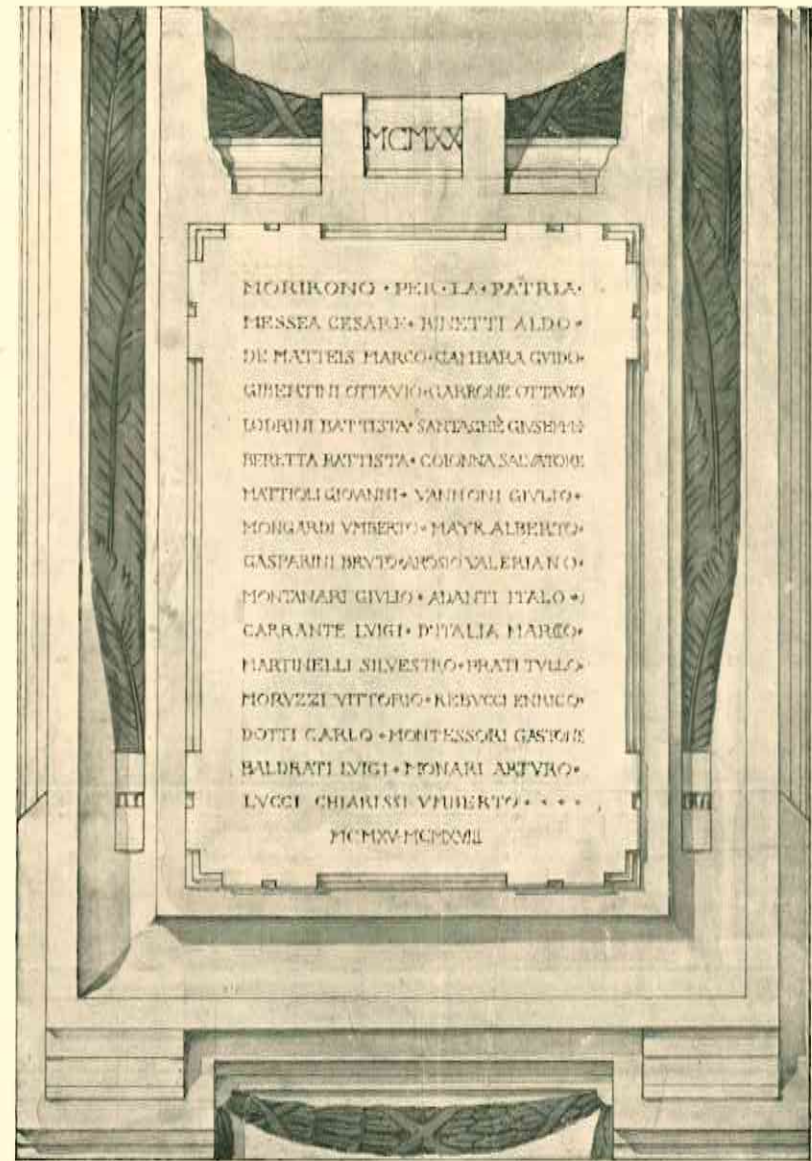 MCMXX
MORIRONO • PER • LA • PATRIA •
MESSEA CESARE • BINETTI ALDO •
DE MATTEIS MARCO • GAMBARA GVIDO •
GIBERTINI OTTAVIO • GARRONE OTTAVIO
LODRINI BATTISTA • SANTAGHÈ GIVSEPPE
BERETTA BATTISTA • COLONNA SALVATORE
MATTIOLI GIOVANNI • VANNONI GIVLIO •
MONGARDI VMBERTO • MAYR ALBERTO •
GASPARINI BRVTO • AROSIO VALERIANO •
MONTANARI GIVLIO • ADANTI ITALO •
CARRANTE LVIGI • D'ITALIA MARCO •
MARTINELLI SILVESTRO • PRATI TVLLO •
MORVZZI VITTORIO • REBVCCI ENRICO •
DOTTI CARLO • MONTESSORI GASTONE
BALDRATI LVIGI • MONARI ARTVRO •
LVCCI CHIARISSI VMBERTO • • • •
MCMXV • MCMXVIII